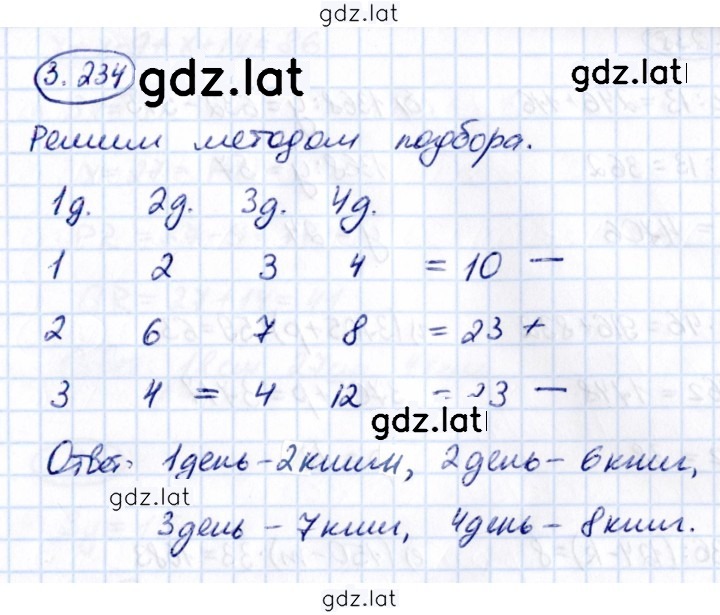 gdz.lat
3.234 gdz.lat gdz.lat
Решим методом подбора.
1д. 2д. 3д. 4д.
1 2 3 4 = 10 —
2 6 7 8 = 23 +
3 4 = 4 12 = 23 —
gdz.lat
Ответ: 1день - 2книги, 2день - 6книг,
gdz.lat
3день - 7книг, 4день - 8книг.
gdz.lat